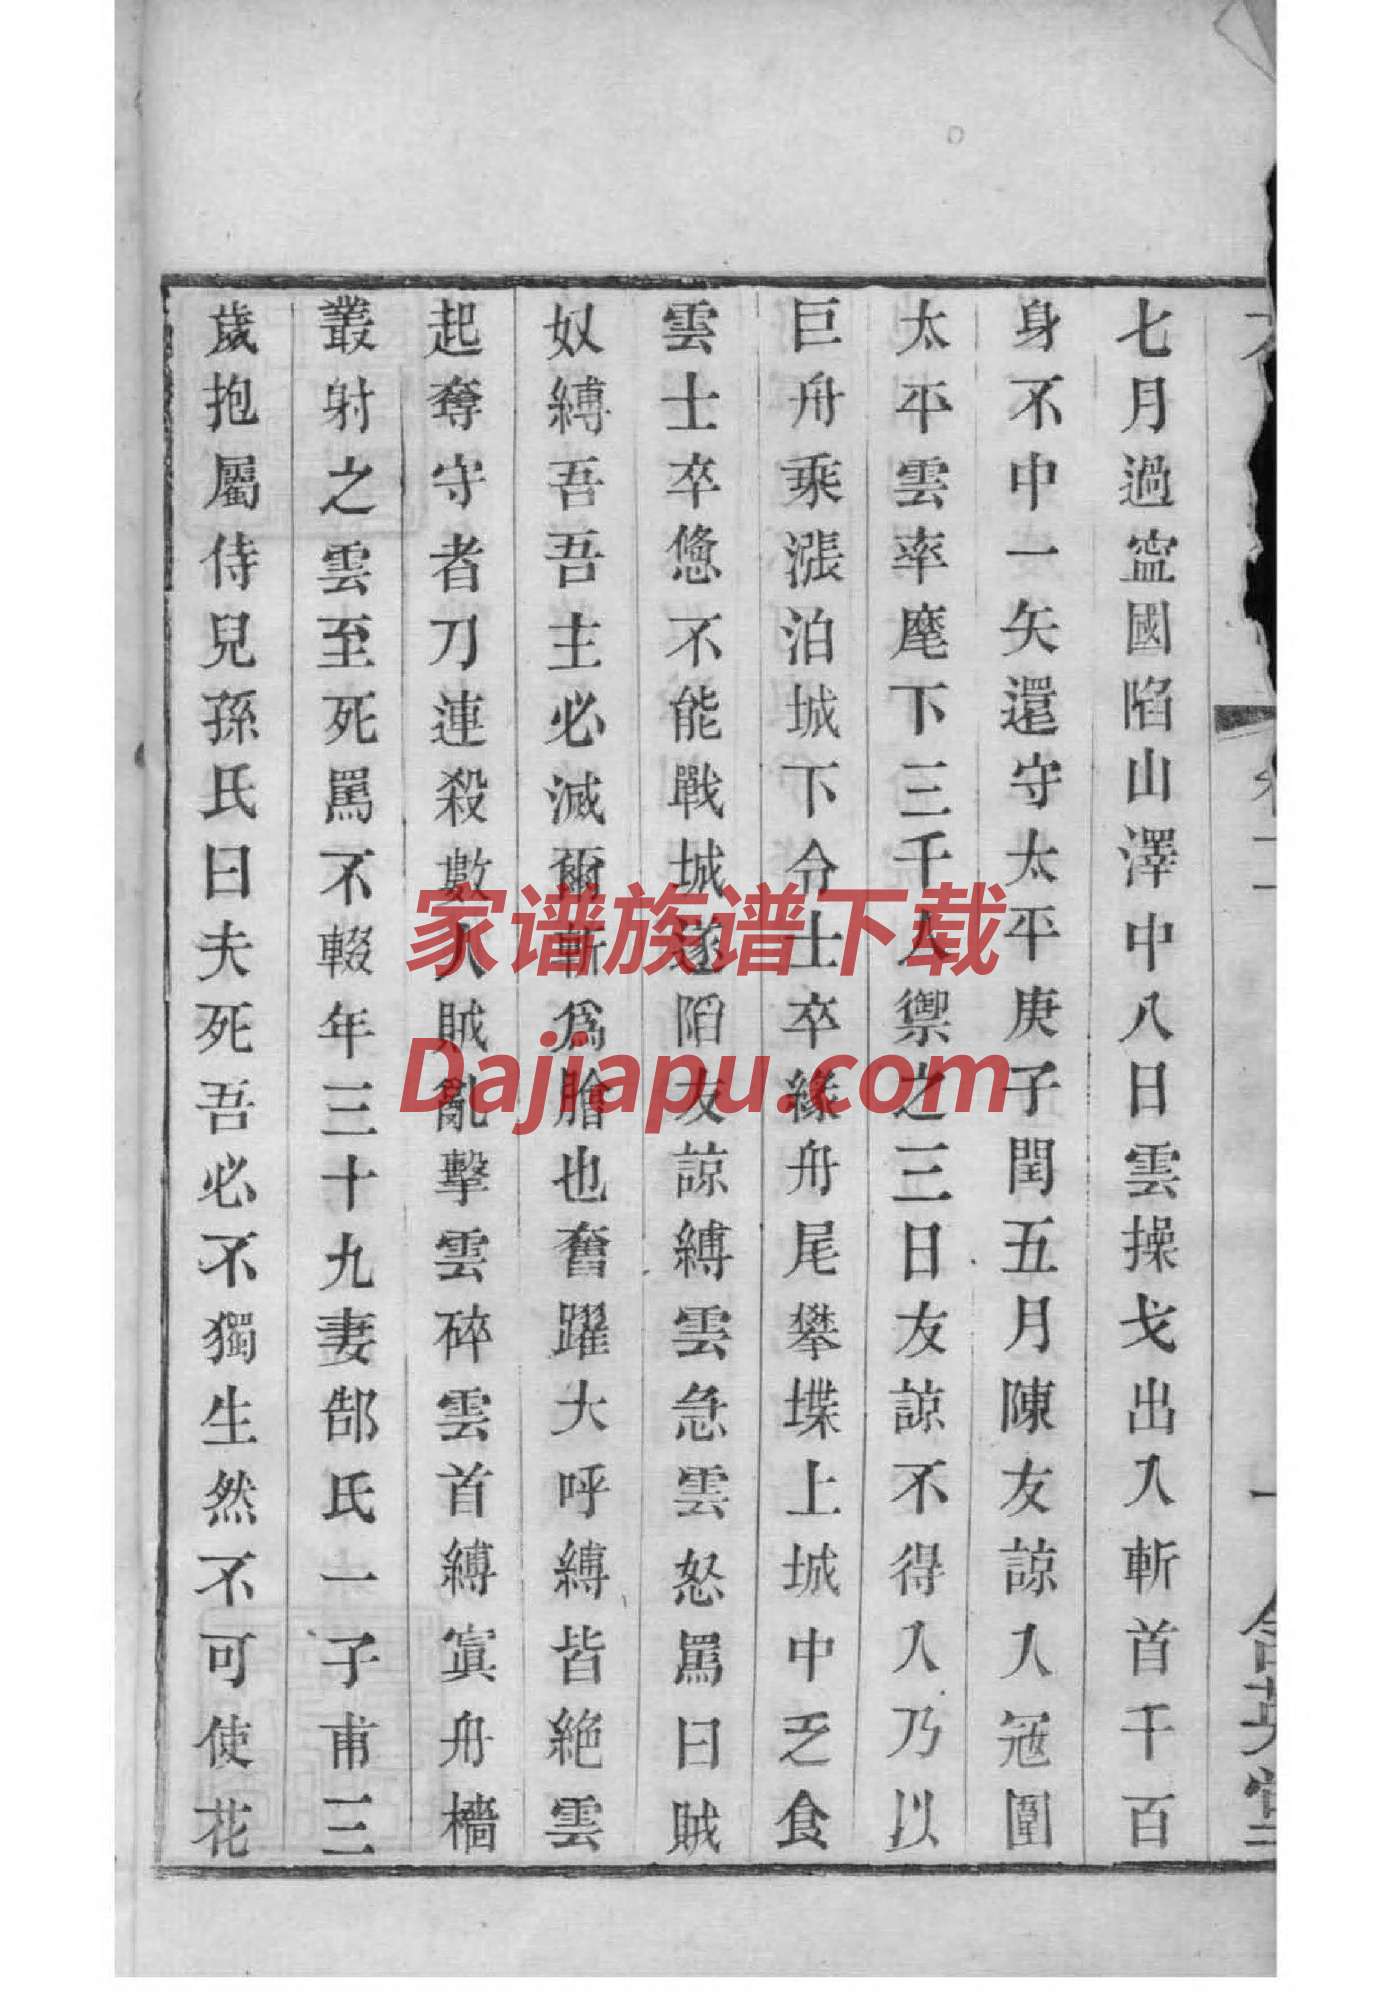 七月過寍國陷山澤中八日雲操戈出入斬首千百
身不中一矢還守太平庚子閏五月陳友諒入寇圍
太平雲率麾下三千人禦之三日友諒不得入乃以
巨舟乘漲泊城下令士卒緣舟尾攀堞上城中乏食
雲士卒憊不能戰城遂陷友諒縛雲急雲怒罵曰賊
奴縛吾吾主必滅爾斬爲膾也奮躍大呼縛皆絕雲
起奪守者刀連殺數人賊亂擊雲碎雲首縛寘舟檣
叢射之雲至死罵不輟年三十九妻郜氏一子甫三
歲抱屬侍兒孫氏曰夫死吾必不獨生然不可使花
家谱族谱下载
Dajiapu.com